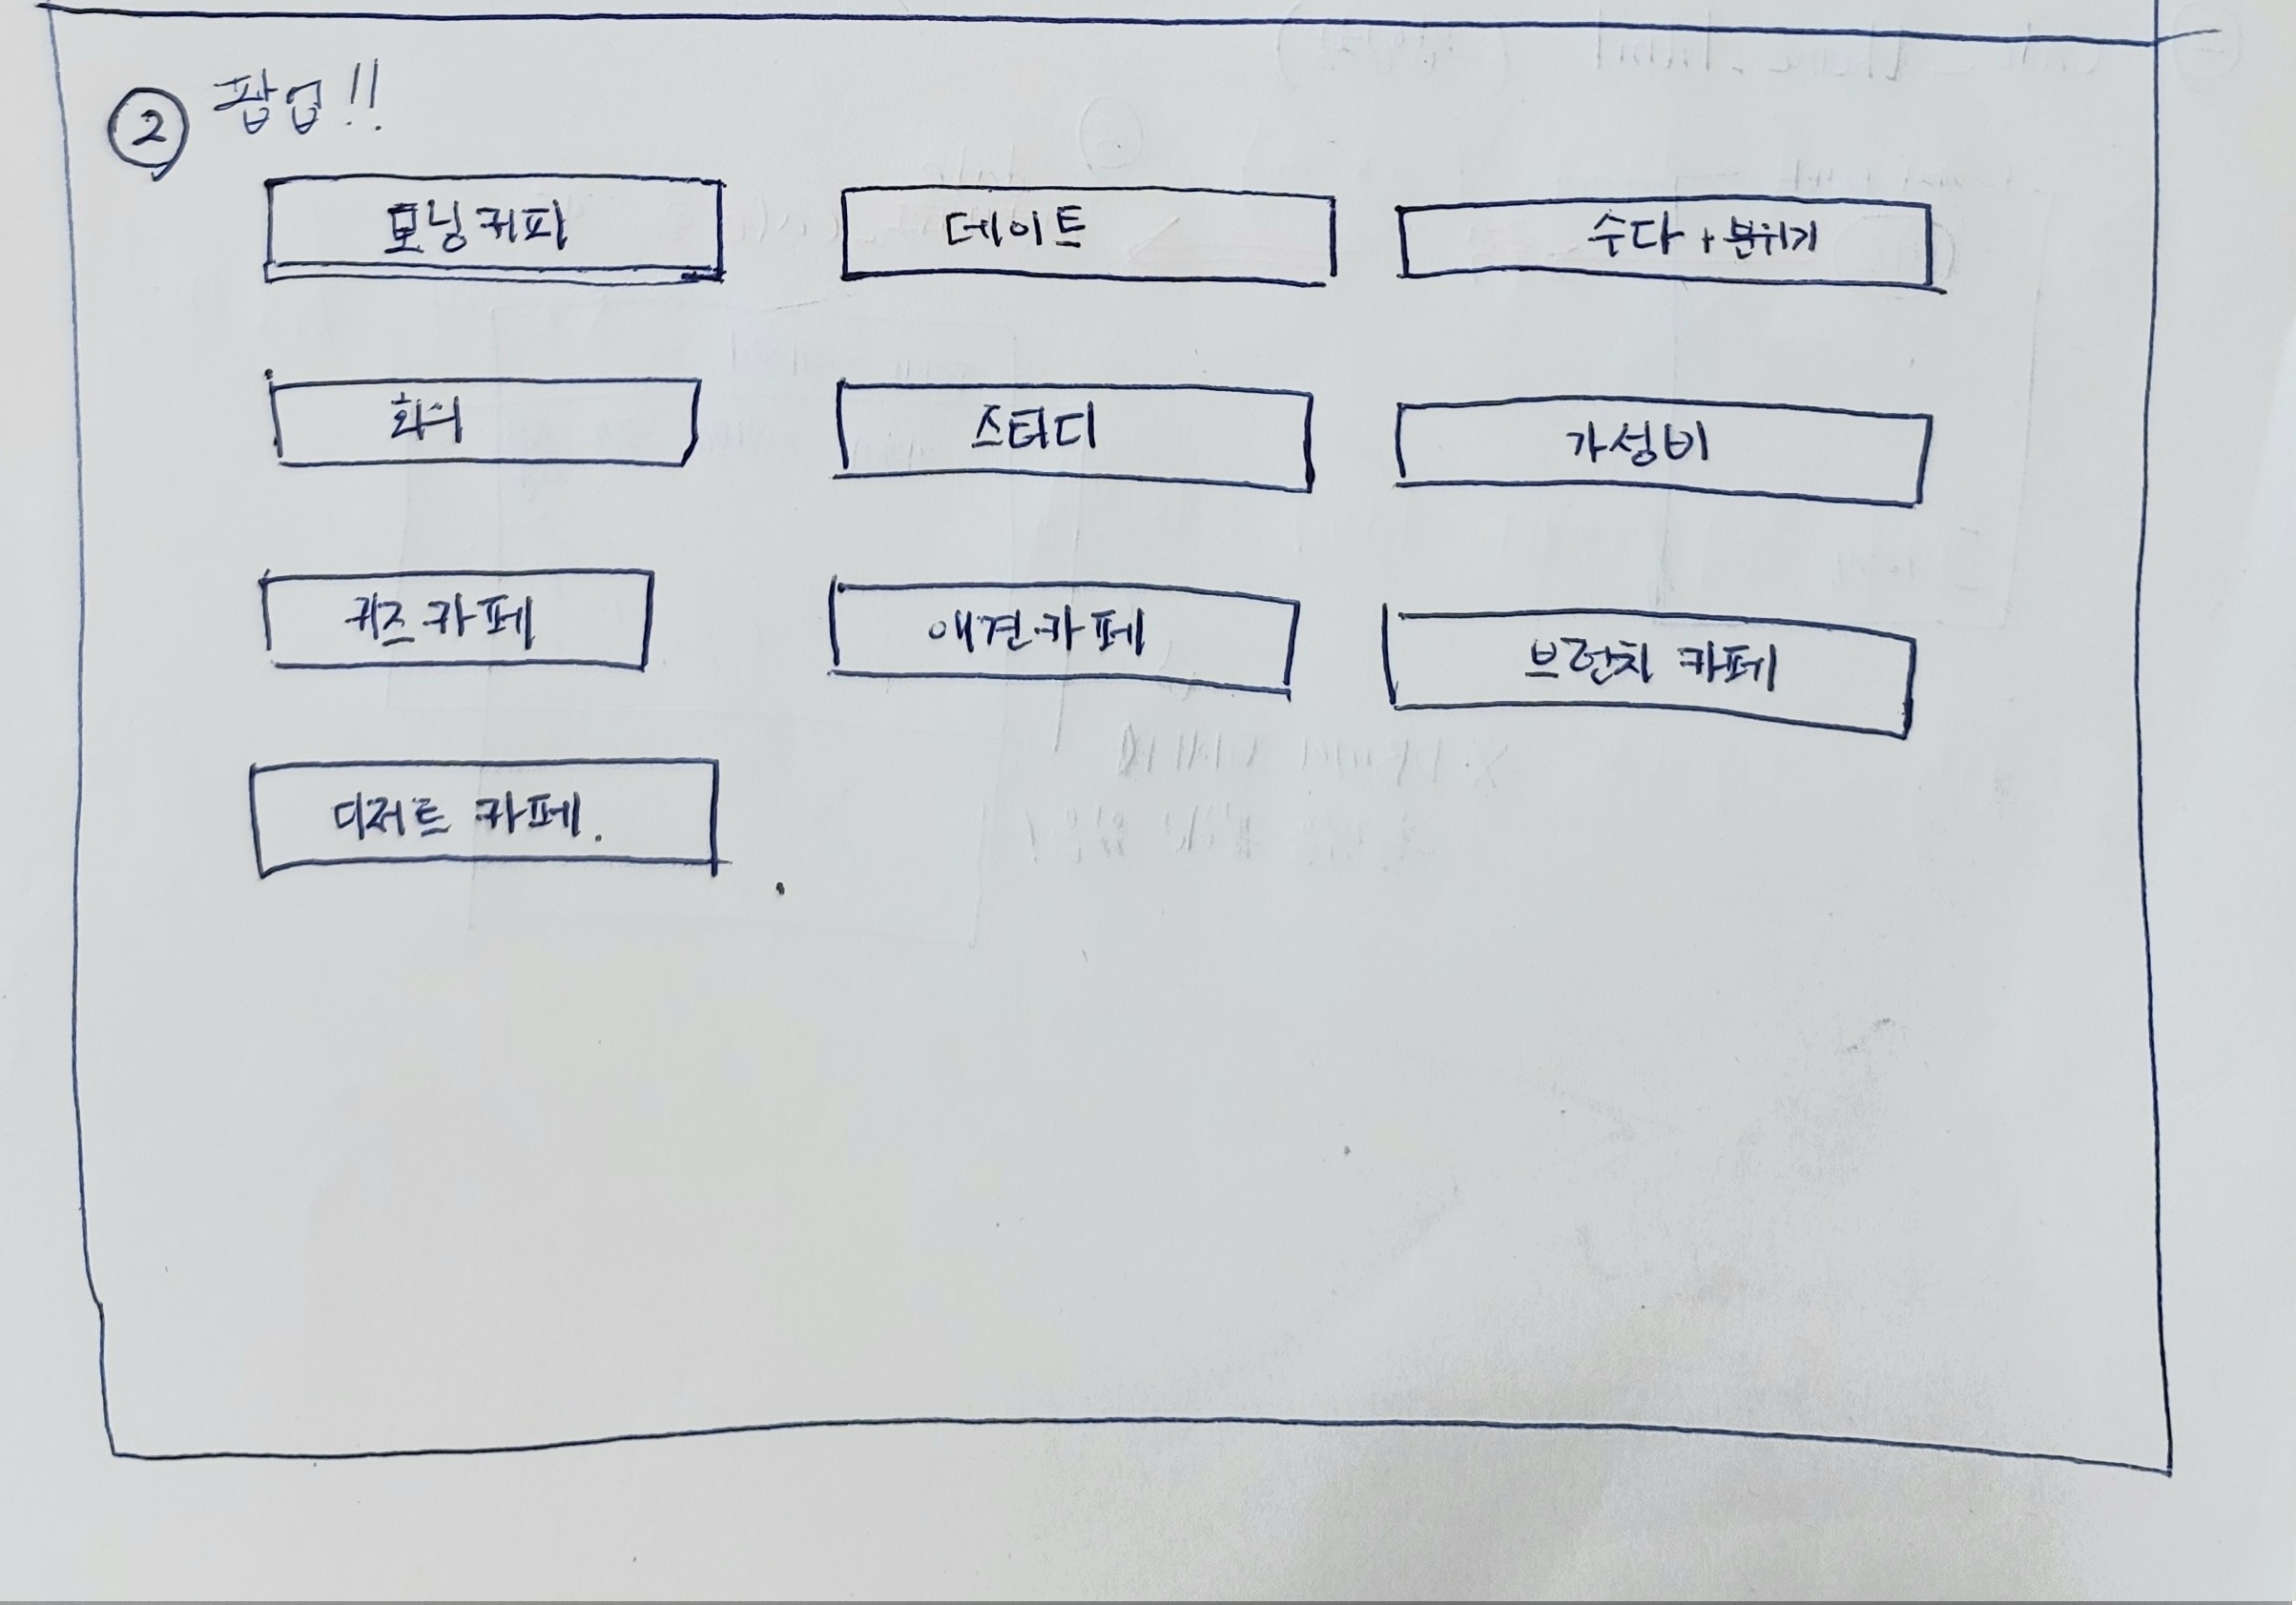 ② 팝업!!
모닝커피 데이트 수다 + 분위기
회의 스터디 가성비
퀴즈 카페 애견카페 브런치 카페
디저트 카페.